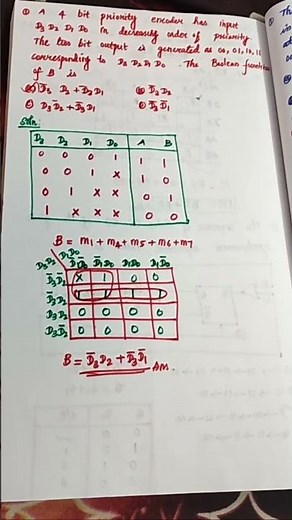 ① A 4 bit priority encoder has input
D₃ D₂ D₁ D₀ in decreasing order of priority.
The two bit output is generated as 00, 01, 10, 11
corresponding to D₃ D₂ D₁ D₀. The Boolean function
of B is
(a) D̅₃ D₂ + D̅₂ D₁ (b) D̅₃ D₂
(c) D̅₃ D₂ + D̅₃ D̅₁ (d) D̅₃ D̅₁
Soln.
D₃ D₂ D₁ D₀ A B
0 0 0 1 1 1
0 0 1 X 1 0
0 1 X X 0 1
1 X X X 0 0
B = m₁ + m₄ + m₅ + m₆ + m₇
D₃D₂ D₁D₀ D̅₁D̅₀ D̅₁D₀ D₁D₀ D₁D̅₀
D̅₃D̅₂ X 1 0 0
D̅₃D₂ 1 1 1 1
D₃D₂ 0 0 0 0
D₃D̅₂ 0 0 0 0
B = D̅₃D₂ + D̅₃D̅₁ Ans.